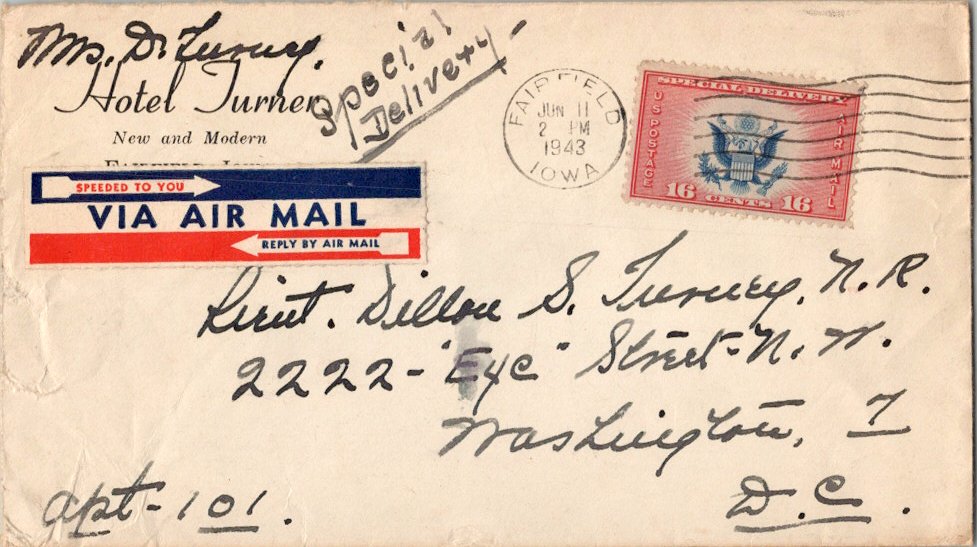 Mrs. D. Turney.
Hotel Turner
New and Modern
Special
Delivery
FAIRFIELD
JUN 11
2 PM
1943
IOWA
SPECIAL DELIVERY
U.S. POSTAGE
AIR MAIL
16 CENTS 16
SPEEDED TO YOU
VIA AIR MAIL
REPLY BY AIR MAIL
Lieut. Dillon S. Turney, N.R.
2222-"Eye" Street-N.W.
Washington, 7
D.C.
apt-101.